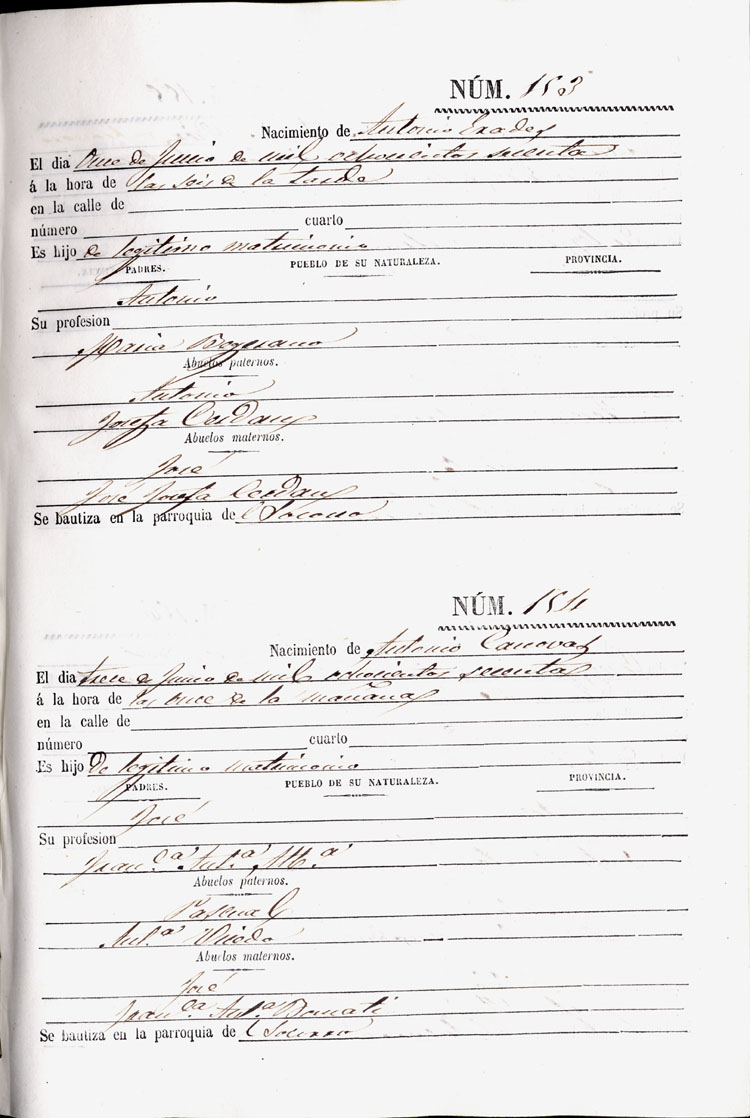 NÚM. 153
Nacimiento de Antonio Prades
El dia Once de Junio de mil ochocientos sesenta
á la hora de las seis de la tarde
en la calle de
número cuarto
Es hijo de legitimo matrimonio
PADRES. PUEBLO DE SU NATURALEZA. PROVINCIA.
Antonio
Su profesion
Maria
Abuelos paternos.
Antonio
Josefa Cerdan
Abuelos maternos.
José
Jose Josefa Cerdan
Se bautiza en la parroquia de Socorro
NÚM. 154
Nacimiento de Antonio Canovas
El dia trece de Junio de mil ochocientos sesenta
á la hora de las once de la mañana
en la calle de
número cuarto
Es hijo de legitimo matrimonio
PADRES. PUEBLO DE SU NATURALEZA. PROVINCIA.
José
Su profesion
Fran.ca Ant.a M.a
Abuelos paternos.
Pascual
Ant.a Oliedo
Abuelos maternos.
José
Fran.ca Ant.a Bonati
Se bautiza en la parroquia de Socorro